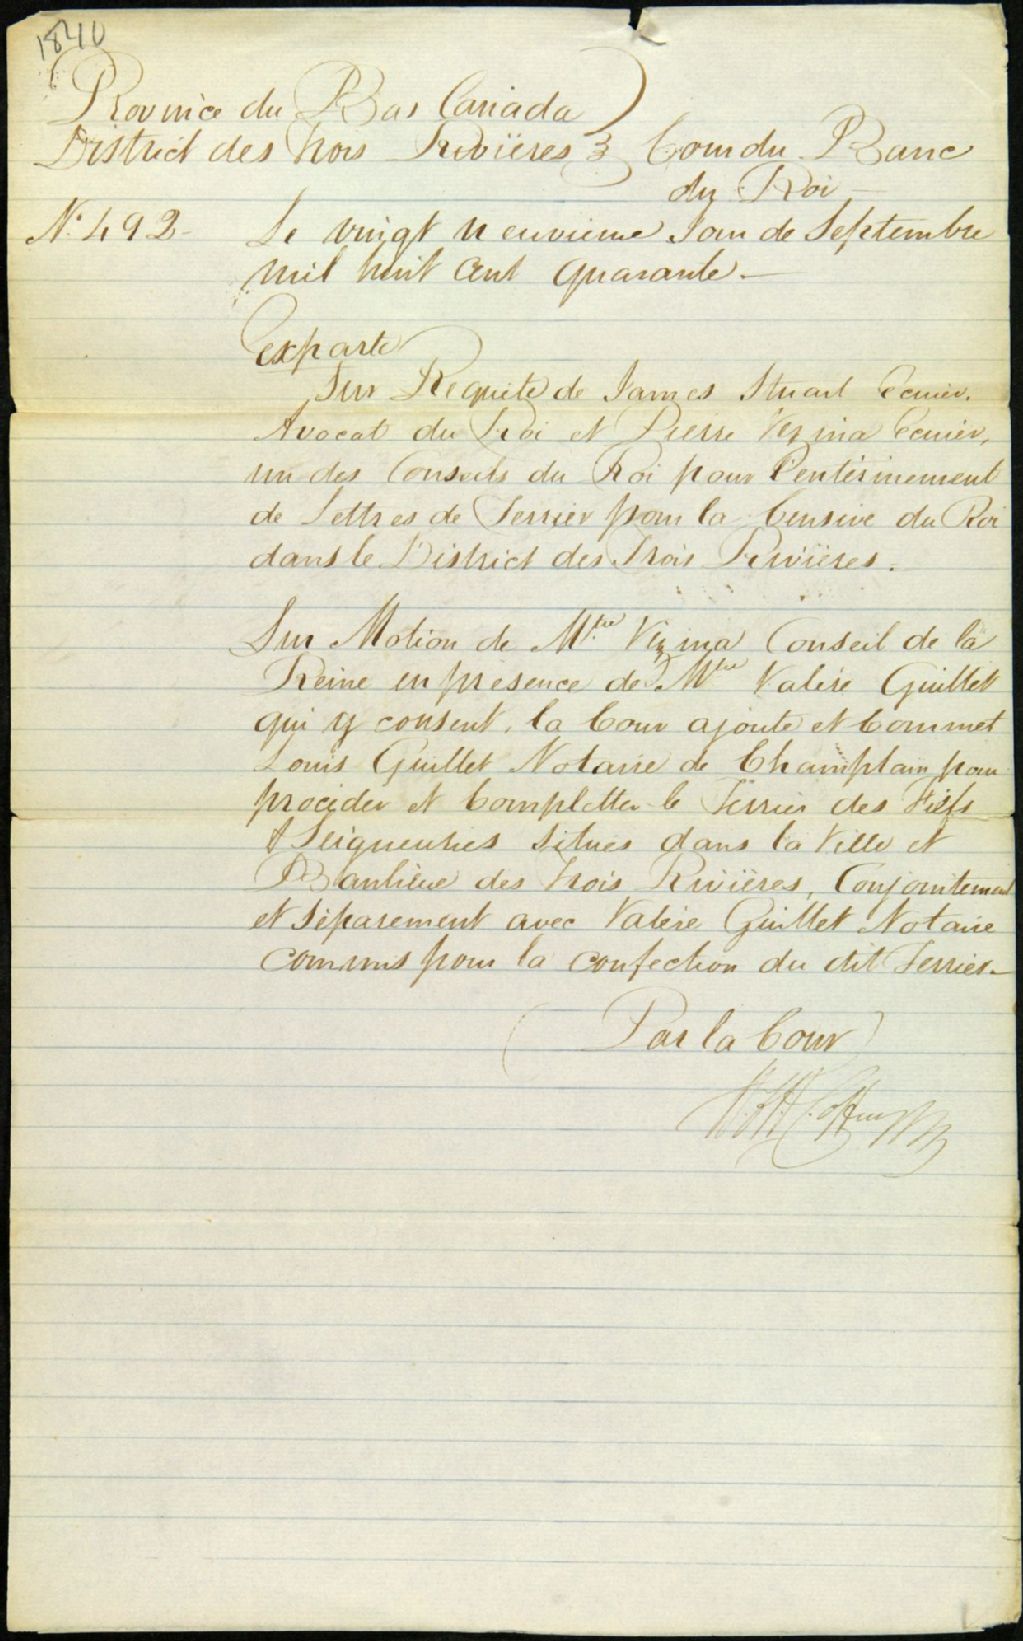 1840
Province du Bas Canada
District des Trois Rivières } Cour du Banc
du Roi —
No. 492 - Le vingt neuvieme Jour de Septembre
mil huit cent quarante. —
Exparte
Sur Requête de James Stuart Ecuier,
Avocat du Roi et Pierre Vezina Ecuier,
un des Conseils du Roi pour l'entérinement
de Lettres de Terrier pour la Censive du Roi
dans le District des Trois Rivières.
Sur Motion de Mtre Vezina Conseil de la
Reine en présence de Mtre Valére Guillet
qui y consent, la Cour ajoute et Commet
Louis Guillet Notaire de Champlain pour
procéder et Completter le Terrier des Fiefs
& Seigneuries situés dans la Ville et
Banlieue des Trois Rivières, Conjointement
et séparement avec Valére Guillet Notaire
commis pour la confection du dit Terrier —
Par la Cour